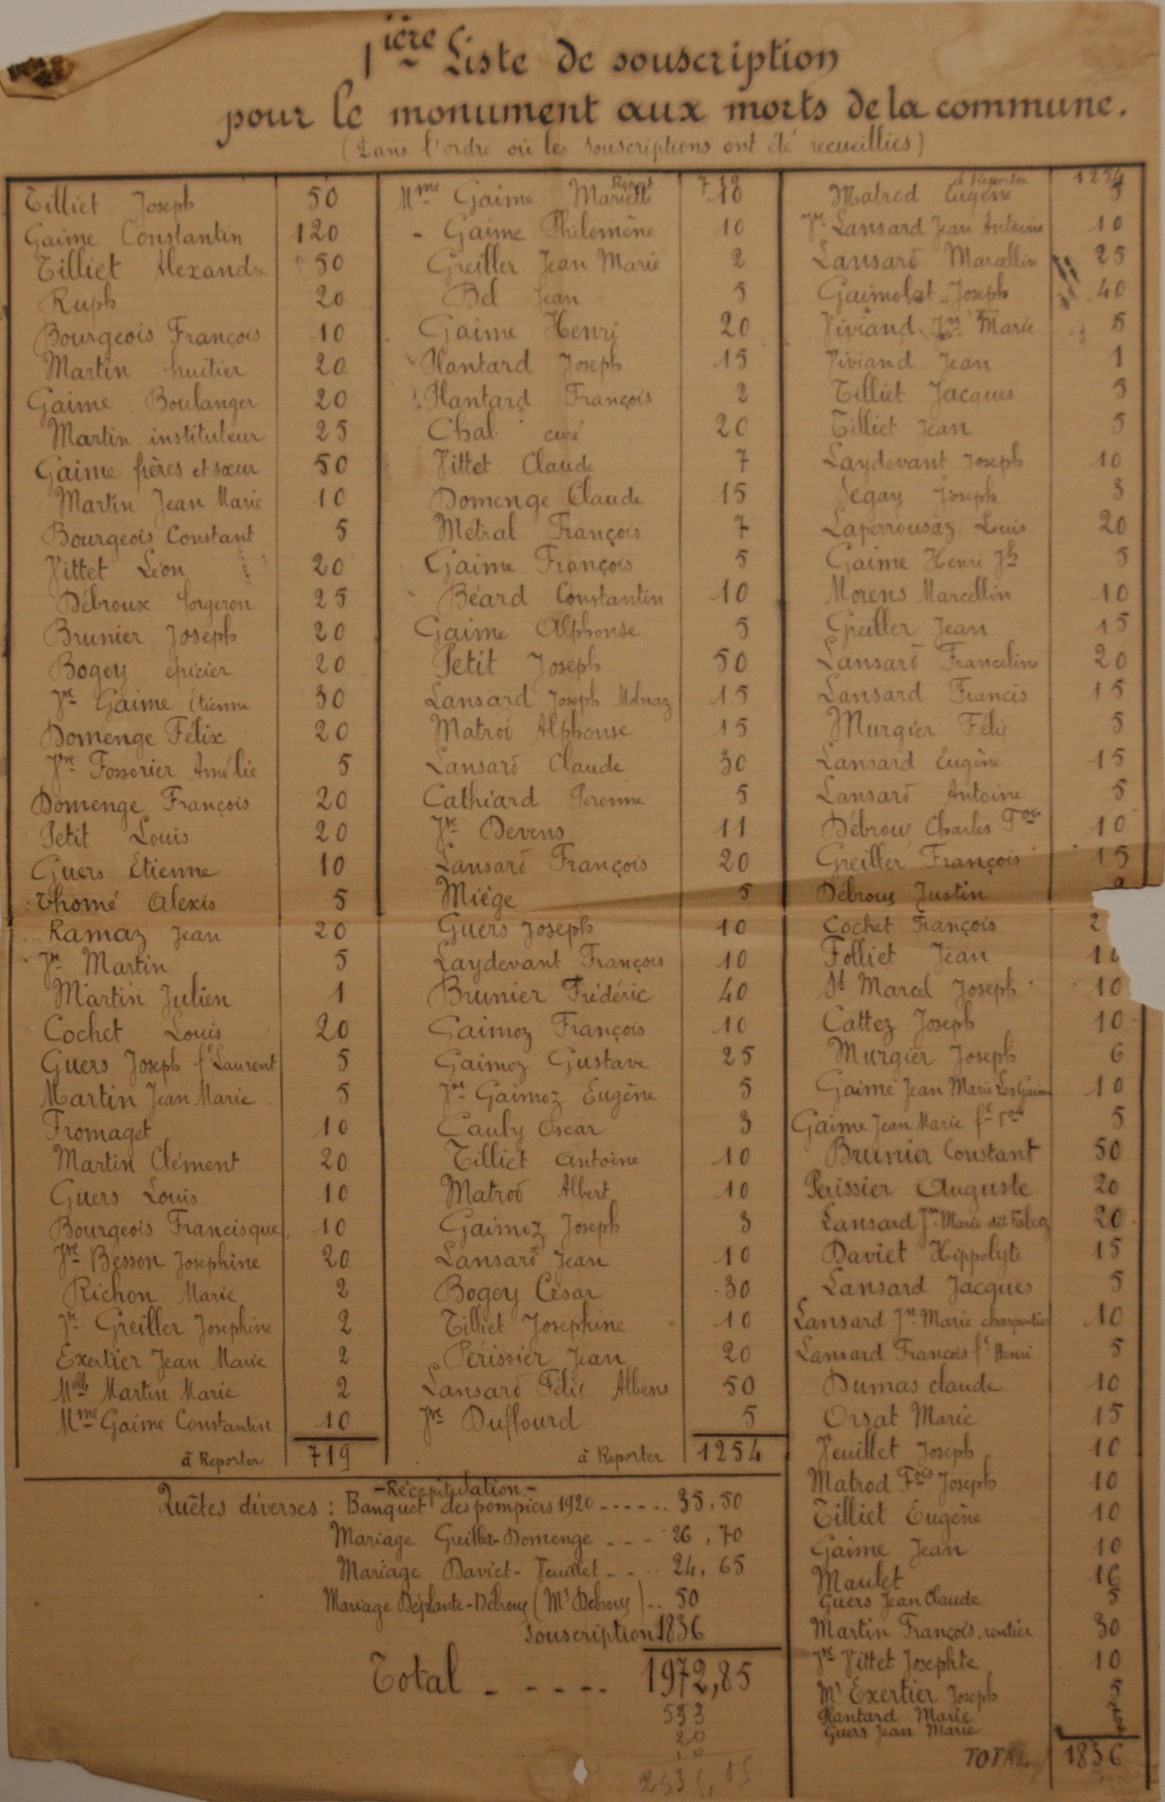 1ière Liste de souscription
pour le monument aux morts de la commune.
(Dans l'ordre où les souscriptions ont été recueillies)
Tilliet Joseph 50
Gaime Constantin 120
Tilliet Alexandre 50
Ruph 20
Bourgeois François 10
Martin huitier 20
Gaime Boulanger 20
Martin instituteur 25
Gaime frères et sœur 50
Martin Jean Marie 10
Bourgeois Constant 5
Vittet Léon 20
Débroux forgeron 25
Brunier Joseph 20
Bogey épicier 20
Vve Gaime Etienne 30
Domenge Félix 20
Vve Fosserier Amélie 5
Domenge François 20
Petit Louis 20
Guers Etienne 10
Thomé Alexis 5
Ramaz Jean 20
Vve Martin 5
Martin Julien 1
Cochet Louis 20
Guers Joseph fe Laurent 5
Martin Jean Marie 5
Fromaget 10
Martin Clément 20
Guers Louis 10
Bourgeois Francisque 10
Vve Besson Josephine 20
Richon Marie 2
Vve Greiller Josephine 2
Exertier Jean Marie 2
Melle Martin Marie 2
Mme Gaime Constantin 10
à Reporter 719
Report 719
Mme Gaime Mariett 10
- Gaime Philomène 10
Greiller Jean Marie 2
Bel Jean 5
Gaime Henri 20
Plantard Joseph 15
Plantard François 2
Chal curé 20
Vittet Claude 7
Domenge Claude 15
Métral François 7
Gaime François 5
Béard Constantin 10
Gaime Alphonse 5
Petit Joseph 50
Lansard Joseph 15
Matrod Alphonse 15
Lansard Claude 30
Cathiard Peronne 5
Vve Devens 11
Lansard François 20
Miège 5
Guers Joseph 10
Laydevant François 10
Brunier Frédéric 40
Gaimoz François 10
Gaimoz Gustave 25
Vve Gaimoz Eugène 5
Cauly Oscar 3
Tilliet Antoine 10
Matrod Albert 10
Gaimoz Joseph 3
Lansard Jean 10
Bogey César 30
Tilliet Josephine 10
Périssier Jean 20
Lansard Félix Albens 50
Vve Duffourd 5
à Reporter 1254
à Reporter 1254
Matrod Eugène 5
Vve Lansard Jean Antoine 10
Lansard Marcellin 25
Gaimolet Joseph 40
Viviand Jn Marie 5
Viviand Jean 1
Tilliet Jacques 5
Tilliet Jean 5
Laydevant Joseph 10
Segay Joseph 3
Laperrousaz Louis 20
Gaime Henri Jh 5
Morens Marcellin 10
Greiller Jean 15
Lansard Franceline 20
Lansard Francis 15
Murgier Félix 5
Lansard Eugène 15
Lansard Antoine 5
Débroux Charles 10
Greiller François 15
Débroux Justin
Cochet François 2
Folliet Jean
St Marcel Joseph 10
Cattez Joseph 10
Murgier Joseph 6
Gaime Jean Marie Les Gaim 10
Gaime Jean Marie 5
Brunier Constant 50
Perissier Auguste 20
Lansard Jn Marie dit 20
Daviet Hippolyte 15
Lansard Jacques 5
Lansard Jn Marie charpentier 10
Lansard François fe Henri 5
Dumas claude 10
Orsat Marie 15
Veuillet Joseph 10
Matrod Fois Joseph 10
Tilliet Eugène 10
Gaime Jean 10
Maulet 16
Guers Jean Claude 5
Martin François, rentier 30
Vve Vittet Josephte 10
Mr Exertier Joseph 5
Plantard Marie
Guers Jean Marie
TOTAL 1836
- Récapitulation -
Quêtes diverses : Banquet des pompiers 1920 ------ 35,50
Mariage Greiller-Domenge --- 26,70
Mariage Daviet-Veuillet ---- 24,65
Mariage Déplante-Débroux (Mr Debroux) -- 50
Souscription 1836
Total ----- 1972,85
553
20